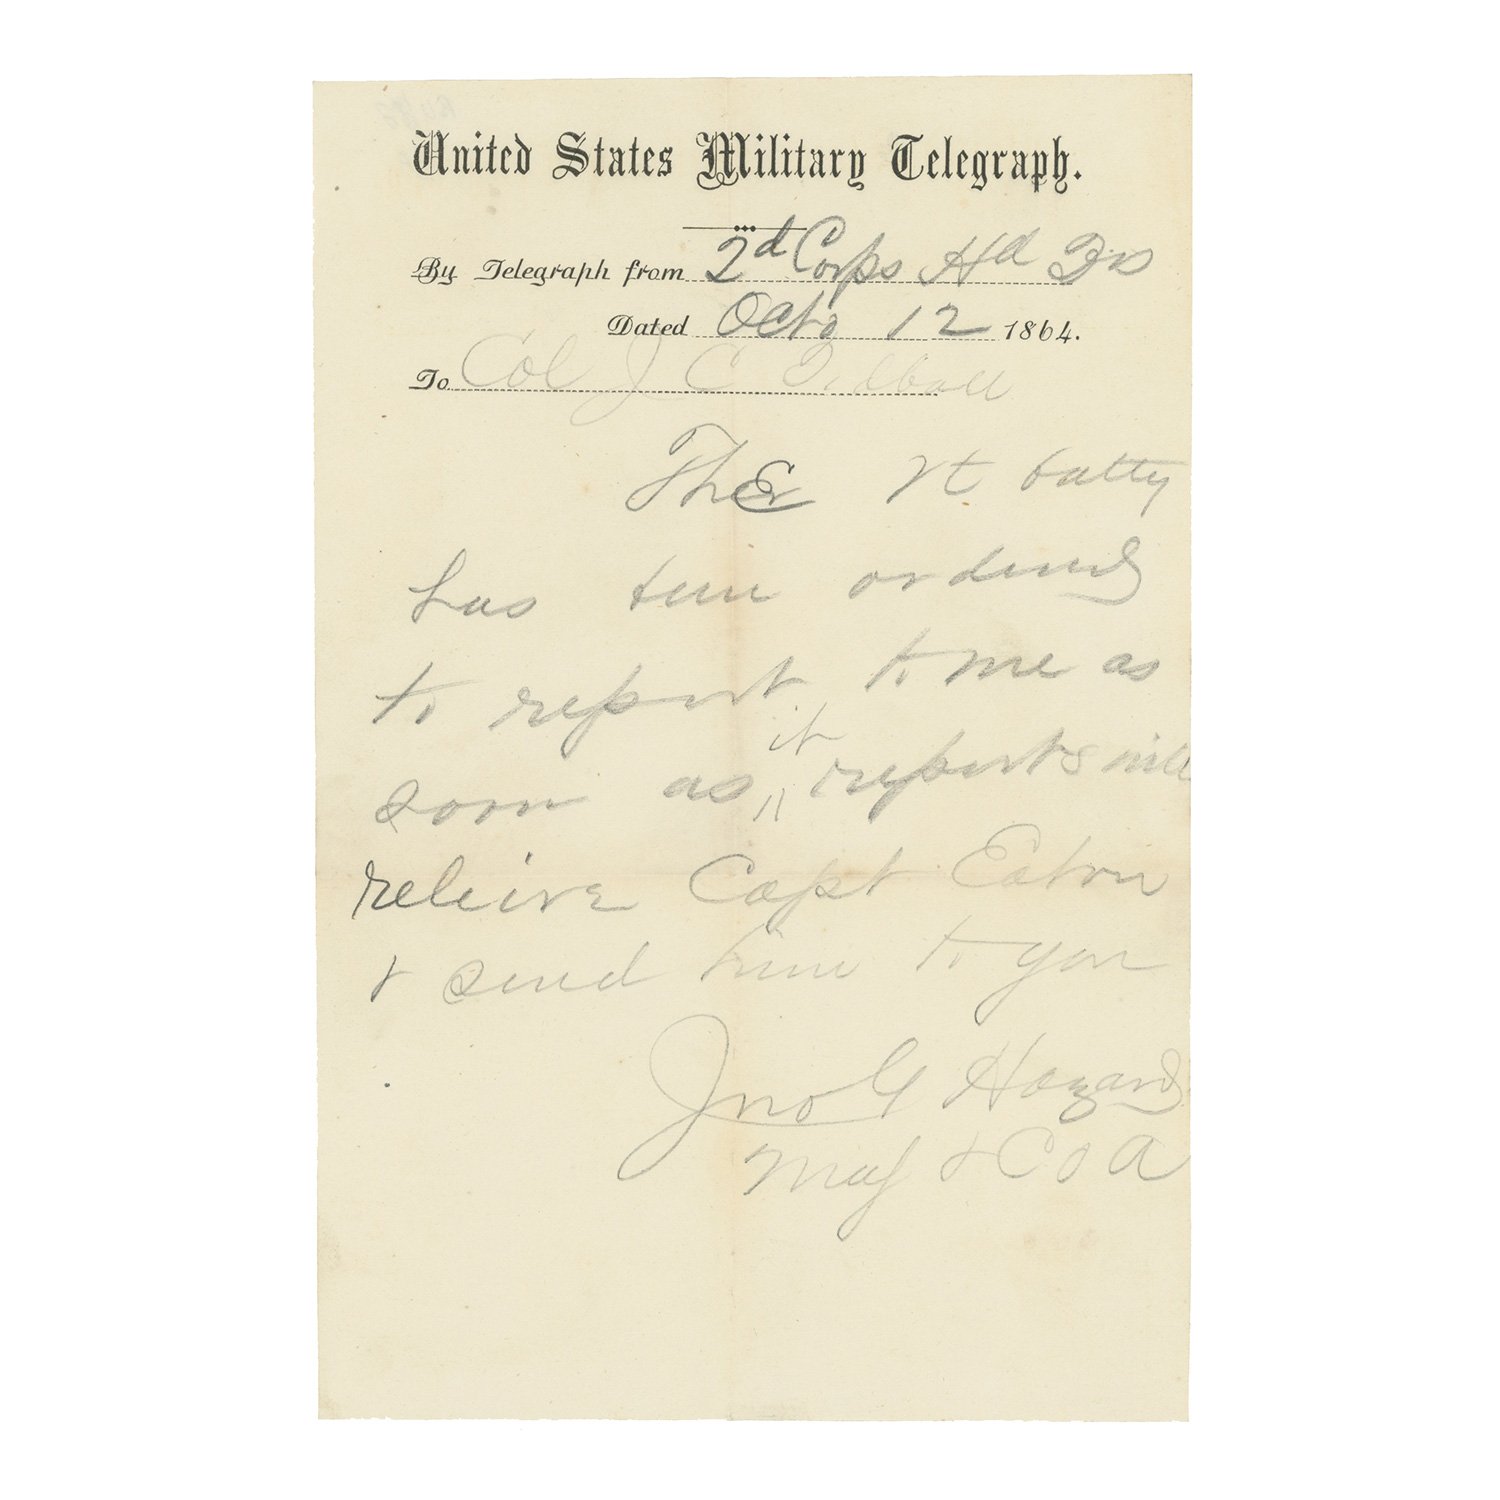 United States Military Telegraph.
By Telegraph from 2d Corps Hd Qrs
Dated Octo 12 1864.
To Col J C Tidball
The Vt batty
has been ordered
to report to me as
soon as it reports will
releive Capt Eaton
& send him to you
Jno G Hazard
Maj & C O A